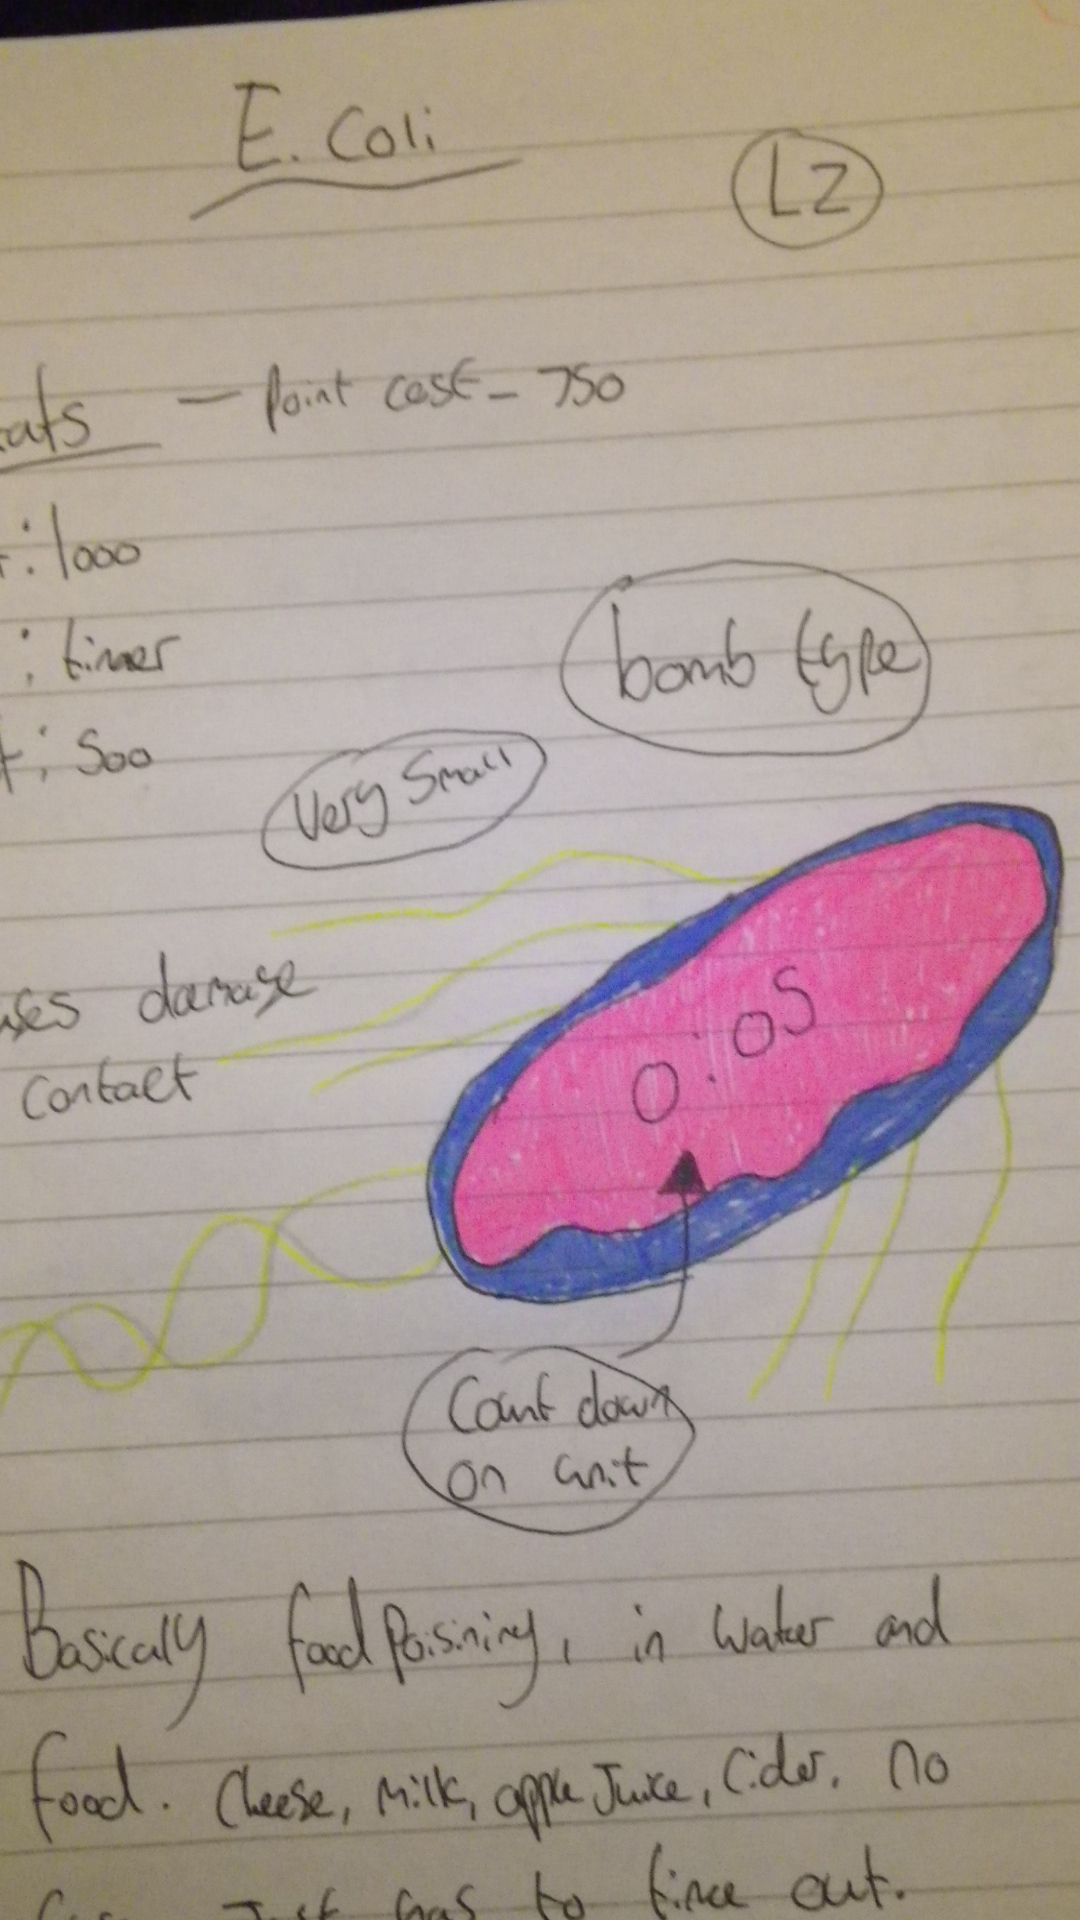 E. Coli
L2
ats — Point cost - 750
: 1000
: timer
: 500
bomb type
Very Small
uses damage
contact
0:05
Count down
on unit
Basically food Poisining, in water and
food. Cheese, Milk, apple Juice, Cider. no
Just has to time out.